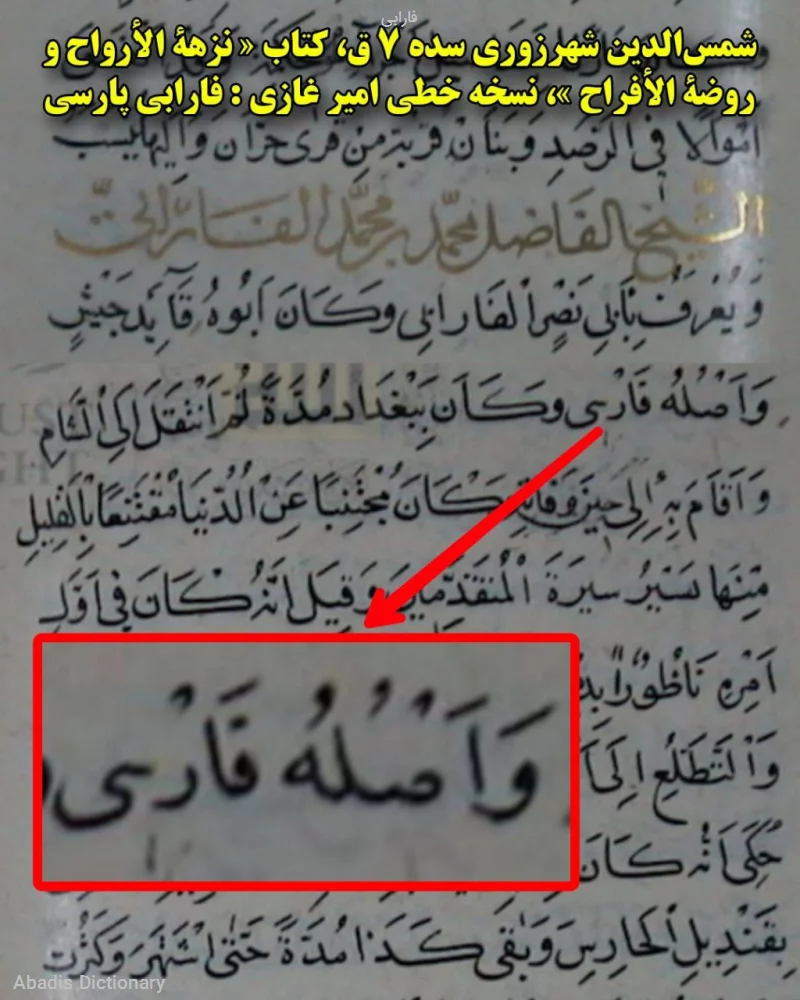 فارابی
شمس‌الدین شهرزوری سده ۷ ق، کتاب « نزهة الأرواح و
روضة الأفراح »، نسخه خطی امیر غازی : فارابی پارسی
اَمْوَالًا فِي الرَّصَدِ وَبَنَان قَرْيَة مِن قُرَى حَرَّان وَاِلَيْهَا يُنسَب
الشَّيخ الفَاضل مُحمّد بن مُحمّد الفَارَابيّ
وَيُعْرَفُ بِأَبِي نَصْرٍ الفَارابي وَكَانَ اَبُوهُ قَآيِدجَيْشٍ
وَاَصْلُهُ فَارْسِى وكَان بِبَغْدَاد مُدَّةً ثُمَّ انْتَقَلَ اِلَى الشَّامِ
وَاَقَامَ بِهِ اِلى حِين وَفَاتِهِ كَانَ مُجْتَنِبًا عَنِ الدُّنيَا مُقْتَنِعًا بِالْقَلِيلِ
مِنهَا يَسِيْرُ سيرَةَ الْمُتَقَدِّمِين وَقِيلَ اَنَّهُ كَانَ فِي اَوَّلِ
اَمْرِهِ نَاطُورًا
وَالتَّطَلُّعِ اِلَى
حُكِىَ اَنَّهُ كَانَ
وَاَصْلُهُ فَارْسِى
بِقَنْدِيلِ الحَارِسِ وَبَقَى كَذَا مُدَّةً حَتَّى اشْتَهَرَ وَكَثُرَت
Abadis Dictionary